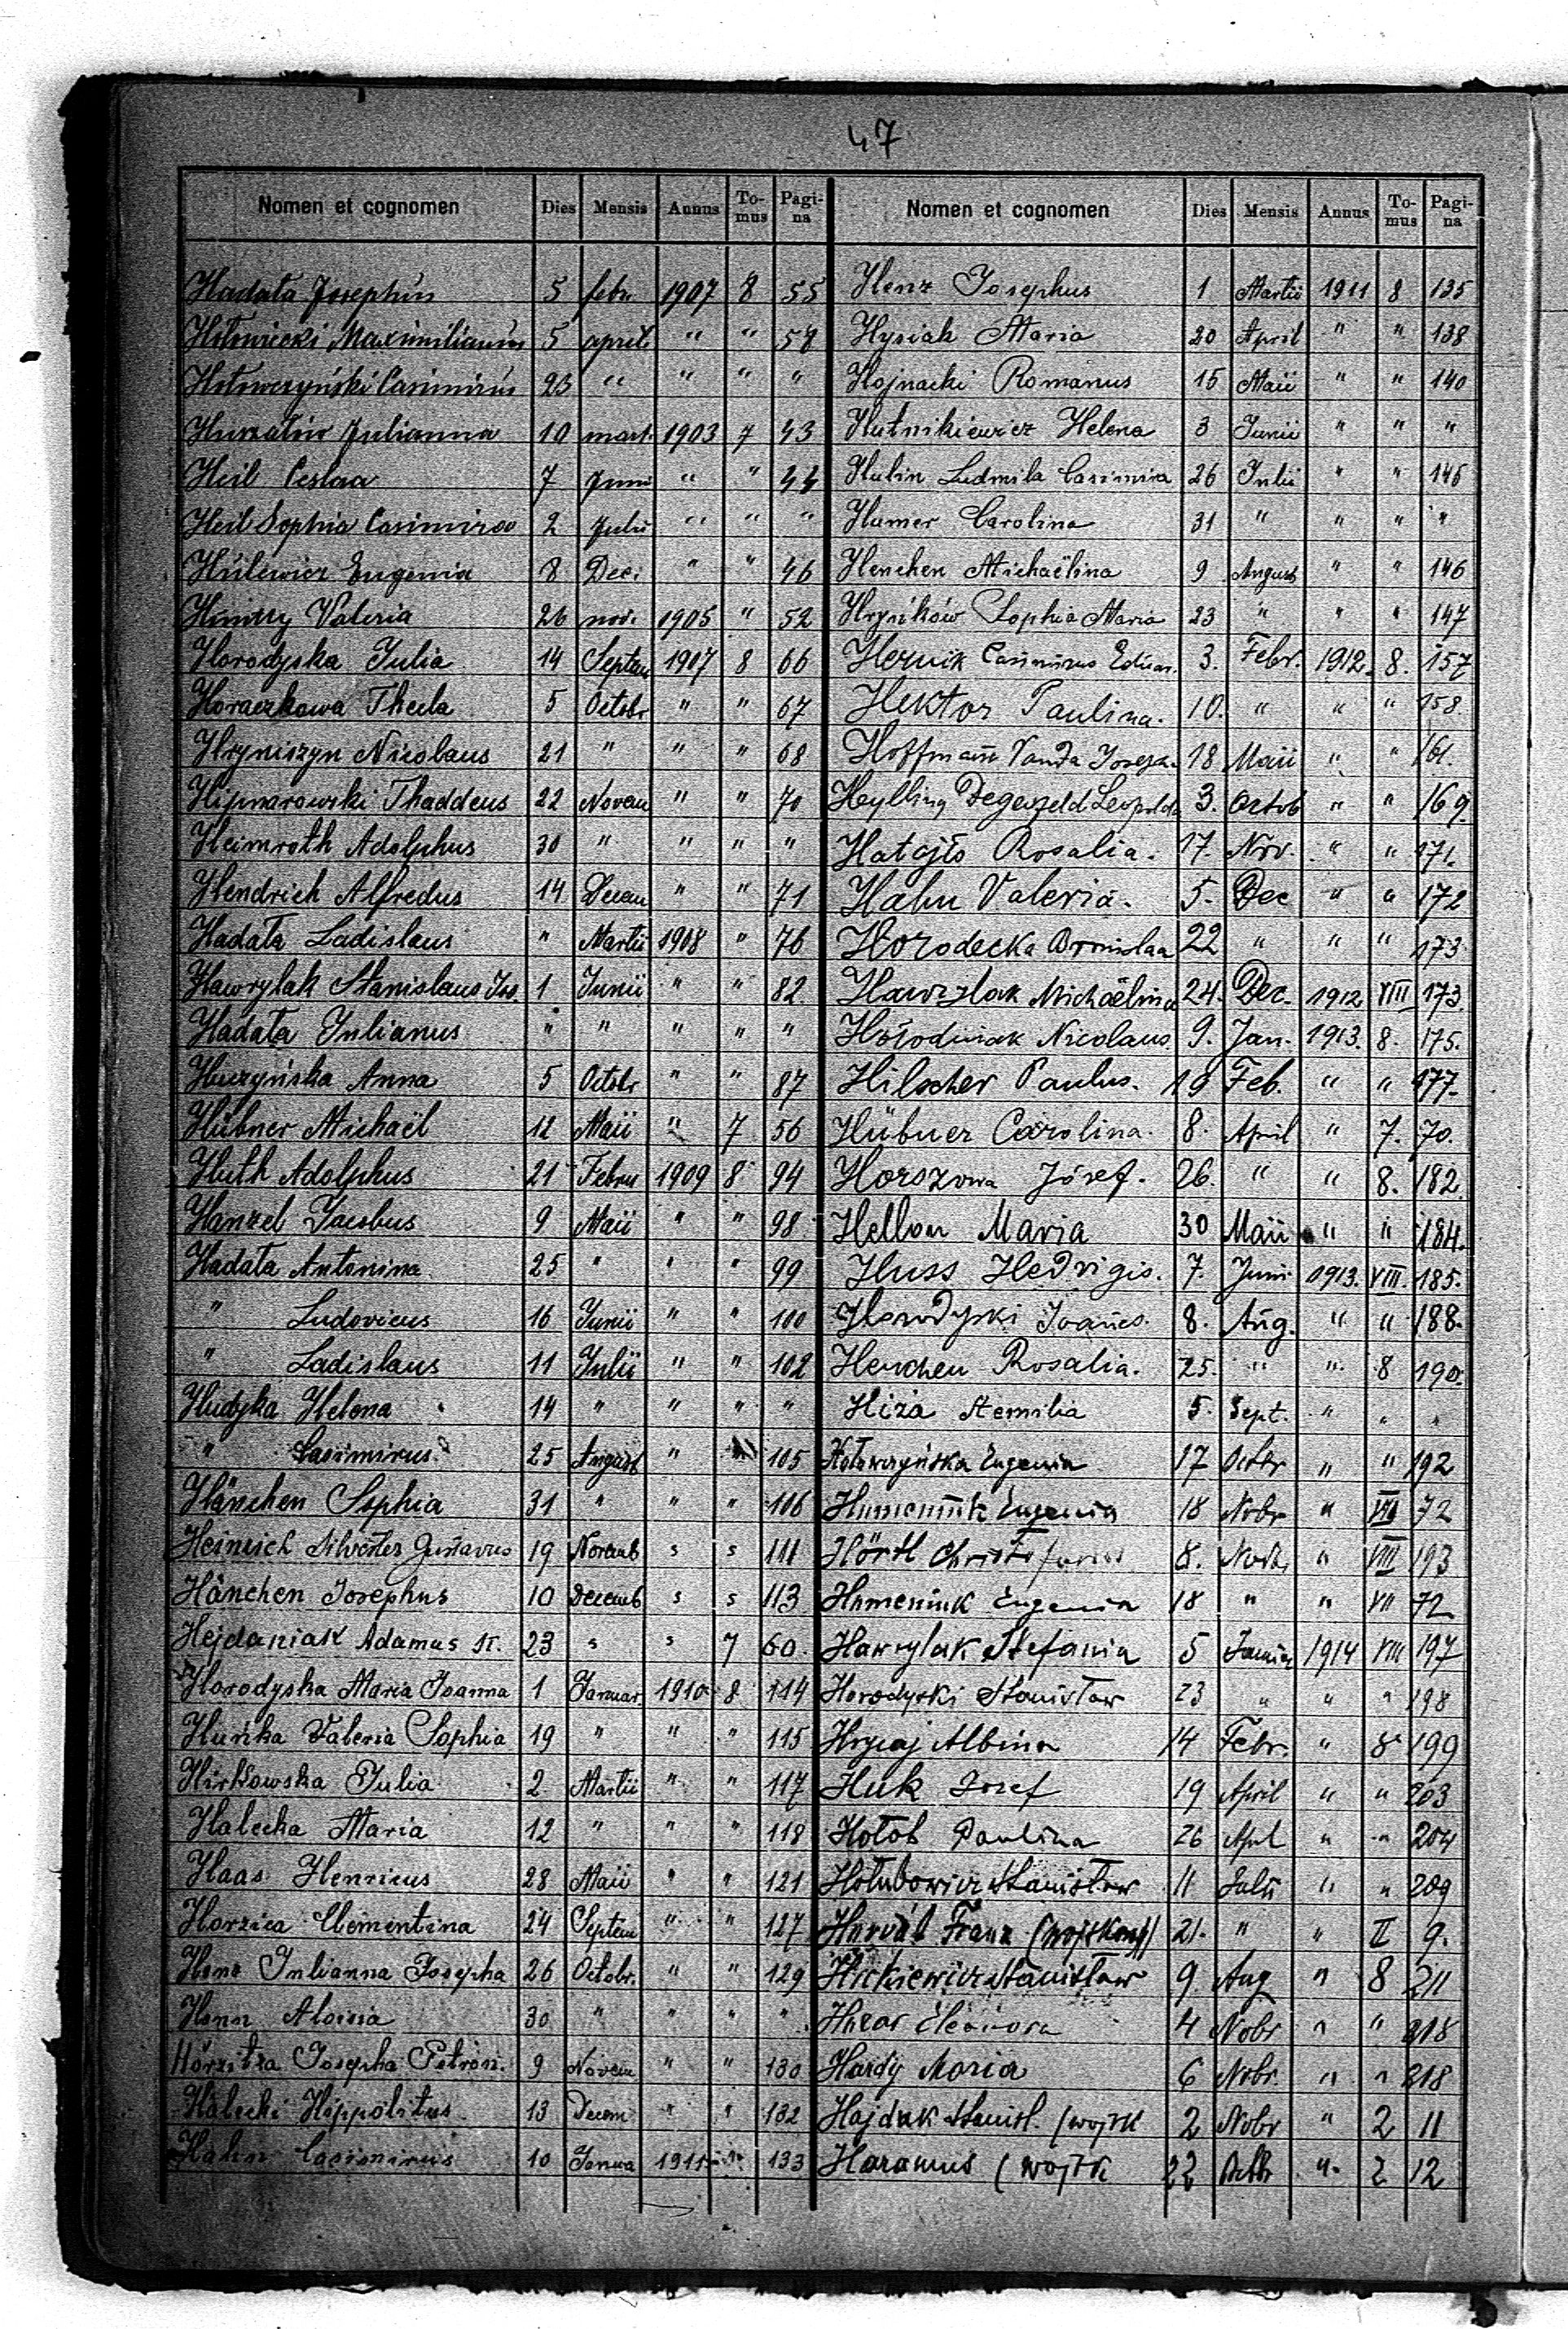 47
Nomen et cognomen Dies Mensis Annus To-mus Pagi-na
Hadata Josephus 5 febr. 1907 8 55
Hołowiecki Maximilianus 5 aprili " " 58
Hołowczyński Casimirus 23 " " " "
Julianna 10 mart. 1903 7 43
Heil Ceslaa 7 Juni " " 44
Heil Sophia Casimira 2 Julii " " "
Hulewicz Eugenia 8 Dec. " " 46
Valeria 26 nov. 1905 " 52
Horodyska Julia 14 Septem 1907 8 66
Horaczkowa Thecla 5 Octobr " " 67
Hryniszyn Nicolaus 21 " " " 68
Thaddeus 22 Novem " " 70
Heimroth Adolphus 30 " " " "
Hendrich Alfredus 14 Decem " " 71
Hadata Ladislaus " Martii 1908 " 76
Hawrylak Stanislaus Jos. 1 Junii " " 82
Hadata Julianus " " " " "
Huczyńska Anna 5 Octobr " " 87
Hübner Michaël 12 Maii " 7 56
Huth Adolphus 21 Febru 1909 8 94
Hanzel Jacobus 9 Maii " " 98
Hadata Antonina 25 " " " 99
" Ludovicus 16 Junii " " 100
" Ladislaus 11 Julii " " 102
Hudyka Helena 14 " " " "
" Casimirus 25 August " 105
Hänchen Sophia 31 " " " 106
Heinrich Silvester Gustavus 19 Novemb s s 111
Hänchen Josephus 10 Decemb s s 113
Hejdaniak Adamus St. 23 s s 7 60.
Horodyska Maria Joanna 1 Januar 1910 8 114
Huńka Valeria Sophia 19 " " " 115
Hirkowska Julia 2 Martii " " 117
Halecka Maria 12 " " " 118
Haas Henricus 28 Maii " " 121
Horzica Clementina 24 Septem " " 127
Julianna Josepha 26 Octobr. " " 129
Aloisia 30 " " " "
Josepha Petron. 9 Novem " " 130
Halecki Hippolitus 13 Decem " " 132
Hahn Casimirus 10 Janua 1911 " 133
Nomen et cognomen Dies Mensis Annus To-mus Pagi-na
Henz Josephus 1 Martii 1911 8 135
Hysiak Maria 20 April " " 138
Hojnacki Romanus 15 Maii " " 140
Hutnikiewicz Helena 3 Junii " " "
Hulin Ludmila Casimira 26 Julii " " 145
Humer Carolina 31 " " " "
Henchen Michaëlina 9 August " " 146
Hryńków Sophia Maria 23 " " " 147
Hernik Casimirus Eduar. 3. Febr. 1912. 8. 157
Hektor Paulina. 10. " " " 158.
Hoffmann Vanda Josepa. 18 Maii " " 161.
Heylling Degenfeld Leopolda 3. Octob " " 169.
Hatajło Rosalia. 17. Nov. " " 171.
Hahn Valeria. 5. Dec " " 172
Horodecka Bronislaa 22 " " " 173
Hawrylak Michaëlina 24. Dec. 1912 VIII 173.
Hołodniak Nicolaus 9. Jan. 1913. 8. 175.
Hilscher Paulus. 19 Feb. " " 177.
Hübner Carolina. 8. April " 7. 70.
Horszowa Józef. 26. " " 8. 182.
Maria 30 Maii " " 184.
Huss Hedvigis. 7. Juni 1913. VIII. 185.
Horodyski Joañes. 8. Aug. " " 188.
Henchen Rosalia. 25. " " 8 190.
Hiża Aemilia 5. Sept. " " "
Hołowczyńska Eugenia 17 Octbr " " 192
Humeniuk Eugenia 18 Nobr " VII 72
Hörtl 8. Nobr " VIII 193
Humeniuk Eugenia 18 " " VII 72
Hawrylak Stefania 5 1914 VIII 197
Horodyski Stanisław 23 " " " 198
Hrycaj Albina 14 Febr. " 8 199
Huk Josef 19 April " " 203
Hołob Paulina 26 Apl " " 204
Hołubowicz Stanisław 11 Julii " " 209
Horvát Franz (wojskowy) 21. " " II 9.
Hickiewicz Stanisław 9. Aug " 8 211
Huzar Eleonora 4 Nobr " " 218
Hardy Maria 6 Nobr. " " 218
Hajduk Stanisł. (wojsk 2 Nobr " 2 11
Haramus (wojsk 22 " 2 12